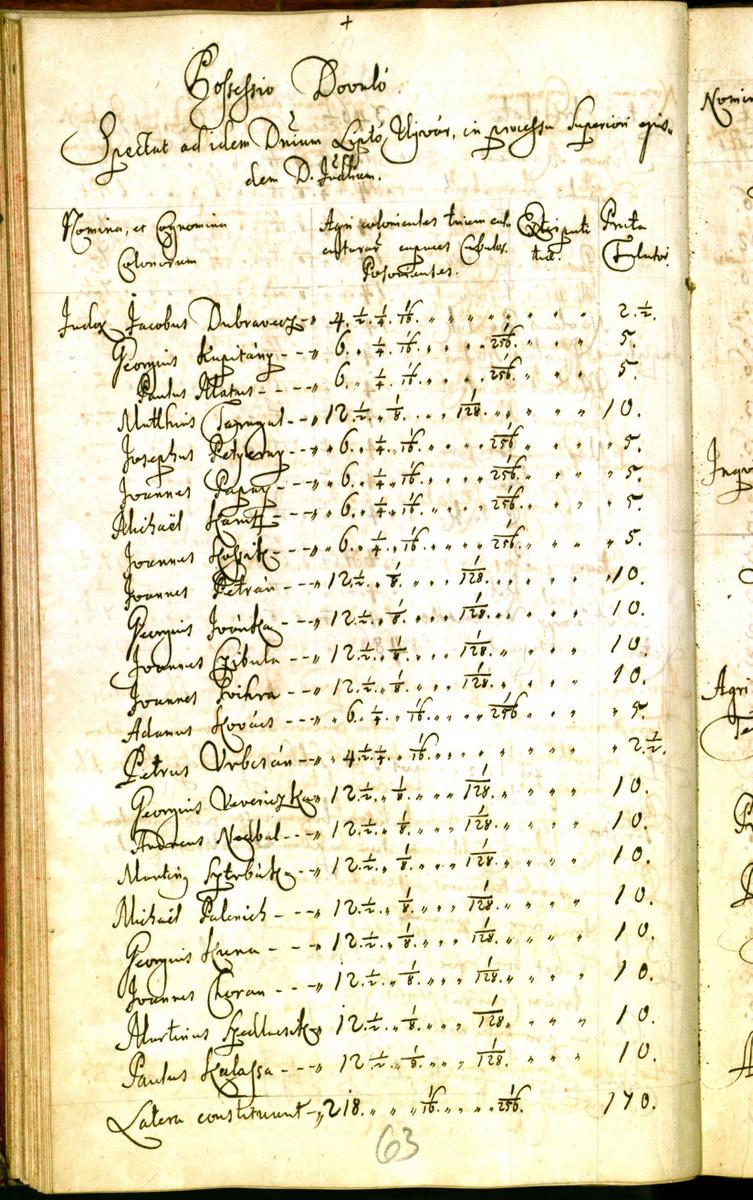 +
Possessio Dovaló
Spectat ad idem Dnium Liptó Ujvár, in processu Superiori ejus-
dem D. Judlium.
Nomina, et Cognomina
Colonorum
Agri colonicules trium cul
culturar capaces Cubulor.
Posonienses.
Prata
Falcator.
Judex Jacobus Dubravecz - 4. 1/2. 1/4. 1/16. 2 1/2.
Georgius Kapitány - - 6. 1/4. 1/16. 1/256. 5.
Paulus Matus - - - 6. 1/4. 1/16. 1/256. 5.
Mathias - 12. 1/2. 1/8. 1/128. 10.
Josephus - - 6. 1/4. 1/16. 1/256. 5.
Joannes Papay - 6. 1/4. 1/16. 1/256. 5.
Michaël - 6. 1/4. 1/16. 1/256. 5.
Joannes - - 6. 1/4. 1/16. 1/256. 5.
Joannes Petrán - - 12. 1/2. 1/8. 1/128. 10.
Georgius Ivánka - - 12. 1/2. 1/8. 1/128. 10.
Joannes Czibula - - 12. 1/2. 1/8. 1/128. 10.
Joannes - - 12. 1/2. 1/8. 1/128. 10.
Adamus Kovács - - 6. 1/4. 1/16. 1/256 5.
Petrus Vrbcsán - - 4 1/2. 1/4. 1/16. 2 1/2.
Georgius Vevericzka 12. 1/2. 1/8. 1/128. 10.
Andreas Nedbal - - 12. 1/2. 1/8. 1/128. 10.
Martin9 Sztrbák - - 12. 1/2. 1/8. 1/128. 10.
Michaël Palenich - - 12. 1/2. 1/8. 1/128. 10.
Georgius Kuna - - 12. 1/2. 1/8. 1/128. 10.
Joannes Choran - - - 12. 1/2. 1/8. 1/128. 10.
Martinus Szedlacsek 12. 1/2. 1/8. 1/128. 10.
Paulus Kalassa - - - 12. 1/2. 1/8. 1/128. 10.
Latera constituunt - 218. 1/16. 1/256. 170.
63
Nomin
Agri